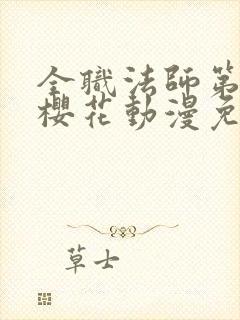 全職法師第
櫻花動漫免
草士